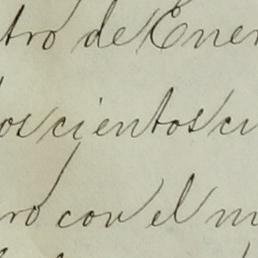 tro de Ener
os cientos cu
ro con el m